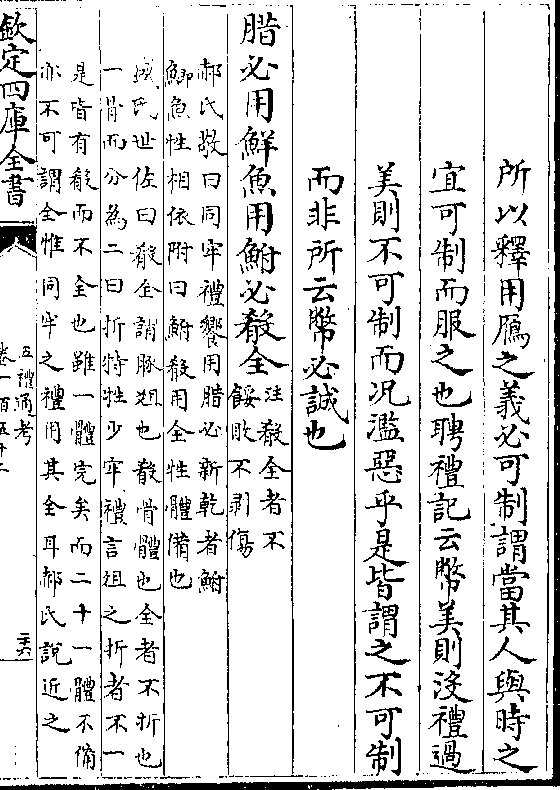 所以釋用鴈之義必可制謂當其人與時之
宜可制而服之也聘禮記云幣美則沒禮過
美則不可制而况濫惡乎是皆謂之不可制
而非所云幣必誠也
腊必用鮮魚用鮒必殽全
注殽全者不
餒敗不剥傷
郝氏敬曰同牢禮饗用腊必新乾者鮒
鯽魚性相依附曰鮒殽用全牲體備也
盛氏世佐曰殽全謂豚俎也殽骨體也全者不折也
一骨而分為二曰折特牲少牢禮言俎之折者不一
是皆有殽而不全也雖一體完矣而二十一體不備
亦不可謂全惟同牢之禮用其全耳郝氏說近之
欽定四庫全書
五禮通考
卷一百五十二
二十六